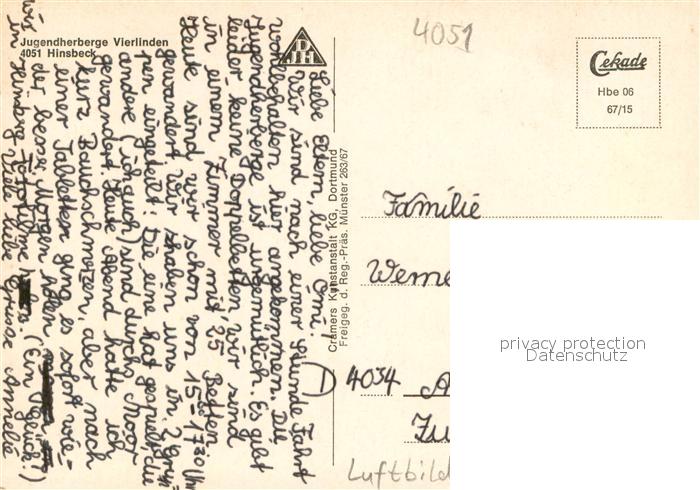 Jugendherberge Vierlinden
4051 Hinsbeck
4051
Cekade
Hbe 06
67/15
Cramers Kunstanstalt KG, Dortmund
Freigeg. d. Reg.-Präs. Münster 263/67
Liebe Eltern, liebe Omi!
Wir sind nach einer Stunde Fahrt
wohlbehalten hier angekommen. Die
Jugendherberge ist urgemütlich. Es gibt
leider keine Doppelbetten wir sind
in einem Zimmer mit 25 Betten
Heute sind wir schon von 15-17³⁰ Uhr
gewandert. Wir haben uns in 2 Grup-
pen eingeteilt: Die eine hat gespielt, die
andere (ich auch) sind durchs Moor
gewandert. Heute Abend hatte ich
kurz Bauchschmerzen, aber nach
einer Tabletten ging es sofort wie-
der besser. Morgen holen
wir in Hinsberg
(Ein Glück!)
Viele liebe Grüsse Annelie
Familie
Werne
D 4054 A
Zu
Luftbild
privacy protection
Datenschutz